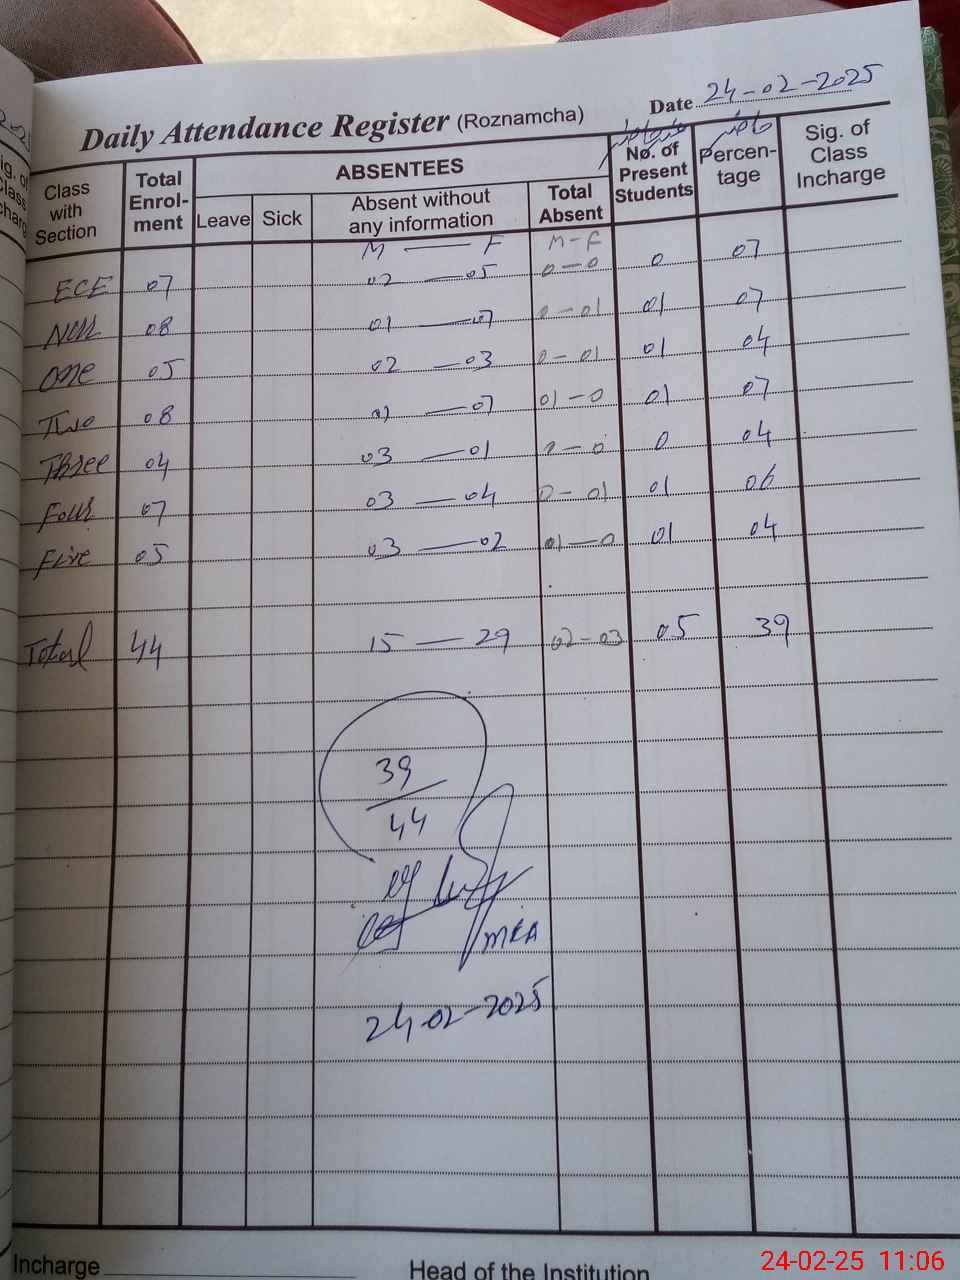 Date 24-02-2025
Daily Attendance Register (Roznamcha)
Class with Section
Total Enrol-ment
ABSENTEES
Leave
Sick
Absent without any information
Total Absent
غیر حاضر
No. of Present Students
حاضر
Percen-tage
Sig. of Class Incharge
M — F M-F
ECE 07 02 — 05 0-0 0 07
Nur 08 01 — 07 0-01 01 07
One 05 02 — 03 0-01 01 04
Two 08 01 — 07 01-0 01 07
Three 04 03 — 01 0-0 0 04
Four 07 03 — 04 0-01 01 06
Five 05 03 — 02 01-0 01 04
Total 44 15 — 29 02-03 05 39
39
44
MEA
24-02-2025
Incharge
Head of the Institution
24-02-25 11:06